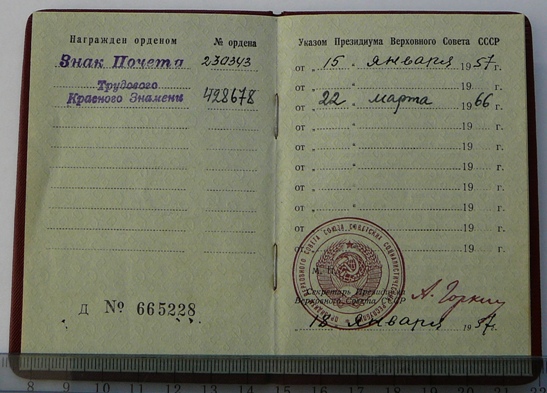 Награжден орденом № ордена
Знак Почета 230343
Трудового
Красного Знамени 428678
Д № 665228
Указом Президиума Верховного Совета СССР
от „ 15 " января 1957 г.
от „ " 19 г.
от „ 22 " марта 1966 г.
от „ " 19 г.
от „ " 19 г.
от „ " 19 г.
от „ " 19 г.
от „ " 19 г.
от „ " 19 г.
от „ " 19 г.
М. П.
Секретарь Президиума
Верховного Совета СССР
А. Горкин
„ 18 " января 1957 г.
8 9 10 11 12 13 14 15 16 17 18 19 20 21 22